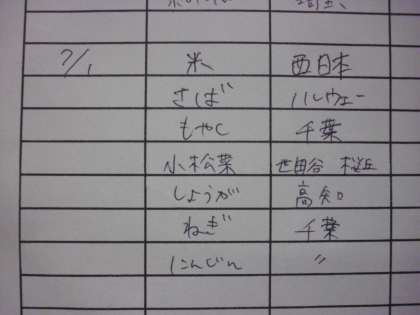 7/1 米 西日本
さば ノルウェー
もやし 千葉
小松菜 世田谷 桜丘
しょうが 高知
ねぎ 千葉
にんじん 〃